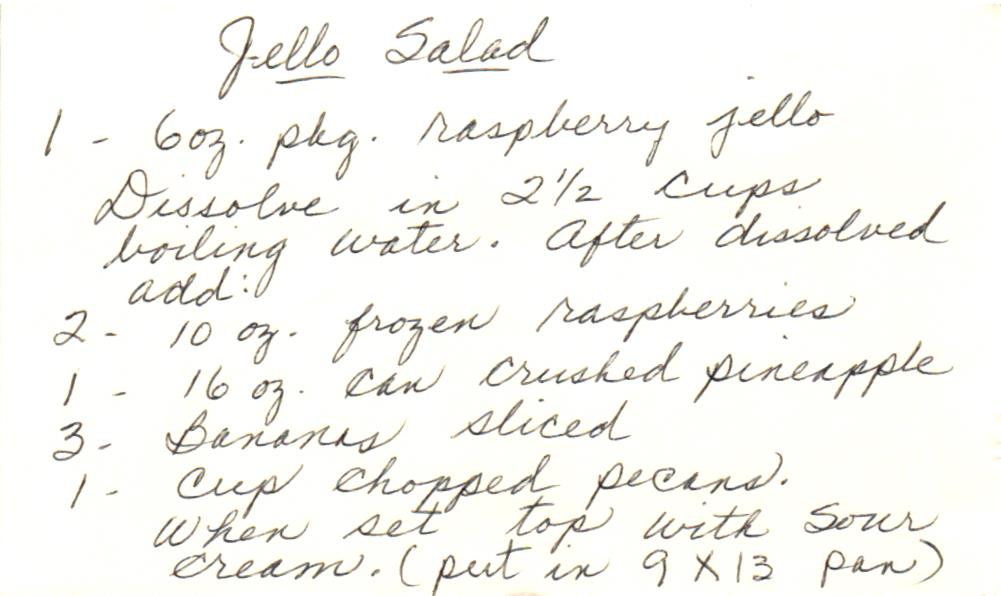 Jello Salad
1 - 6oz. pkg. raspberry jello
Dissolve in 2 1/2 cups
boiling water. After dissolved
add:
2 - 10 oz. frozen raspberries
1 - 16 oz. can crushed pineapple
3 - Bananas sliced
1 - Cup chopped pecans.
When set top with Sour
cream. (put in 9 X 13 pan)